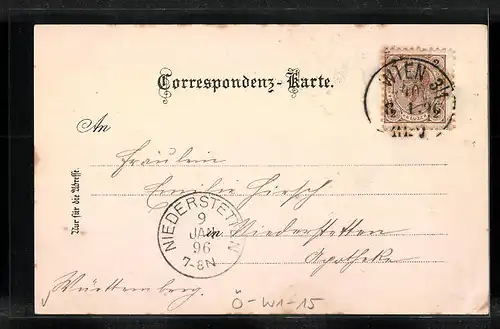 Correspondenz-Karte.
WIEN
8 1 96
An
Fräulein
Emilie Hirsch
in Niederstetten
Apotheke
Württemberg.
Nur für die Adresse.
NIEDERSTETTEN
9
JAN
96
7-8N
Ö-W1-15